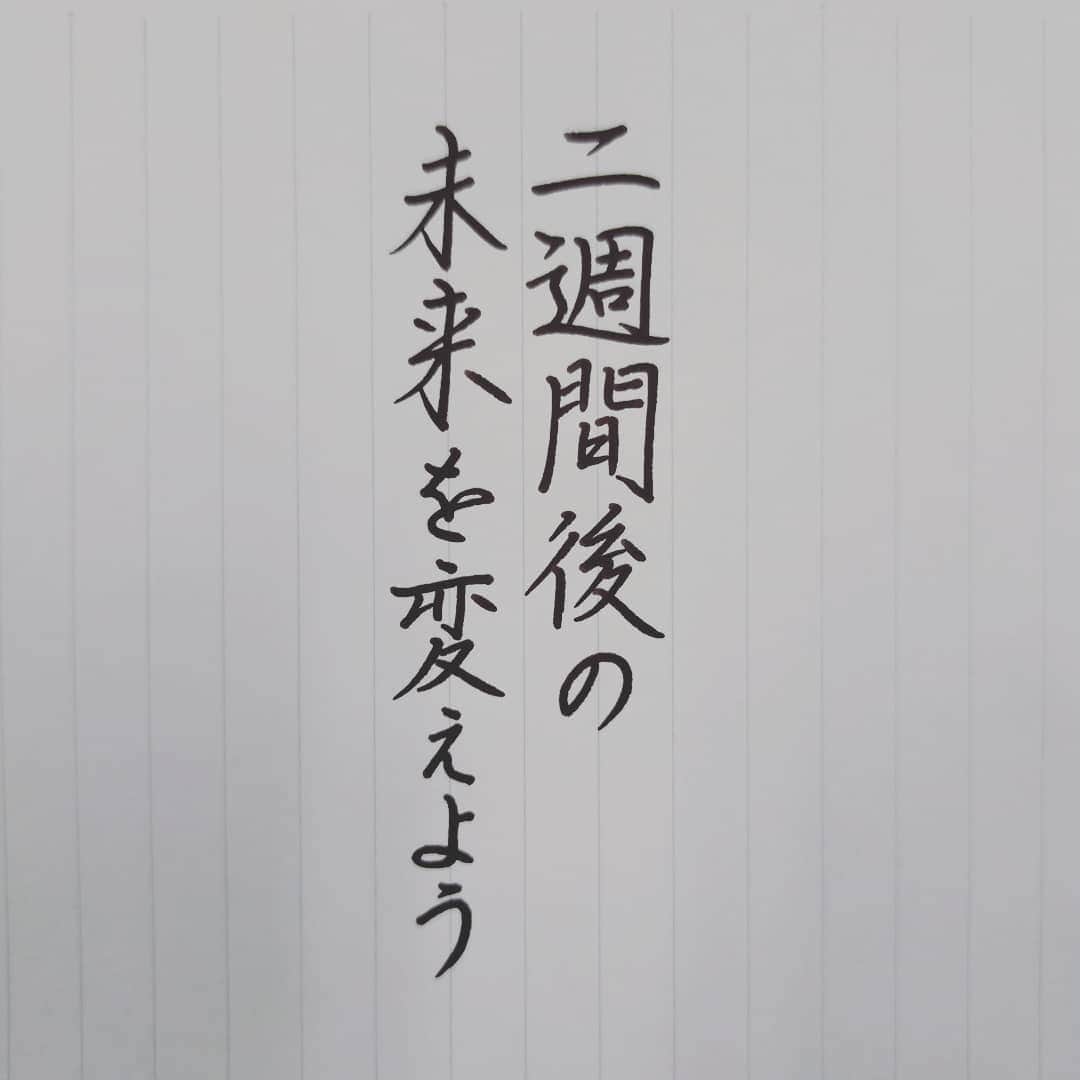 二週間後の
未来を変えよう